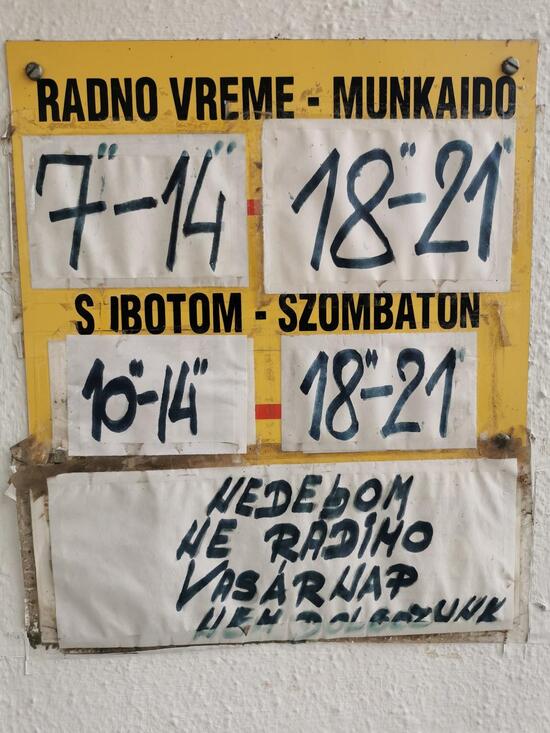 RADNO VREME - MUNKAIDŐ
7"-14" 18"-21"
S IBOTOM - SZOMBATON
10"-14" 18"-21"
NEDEЬOM
NE RADIMO
VASÁRNAP
NEM DOLGOZUNK